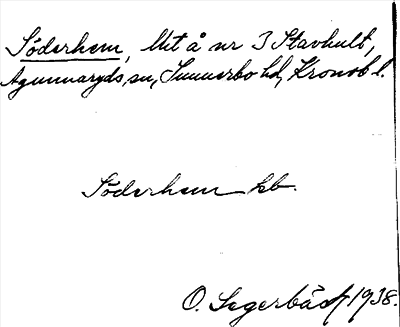 Söderhem, Utt å nr 3 Stavhult,
Agunnaryds sn, Sunnerbo hd, Kronob l.
Söderhem hb.
O. Segerbäck 1938.